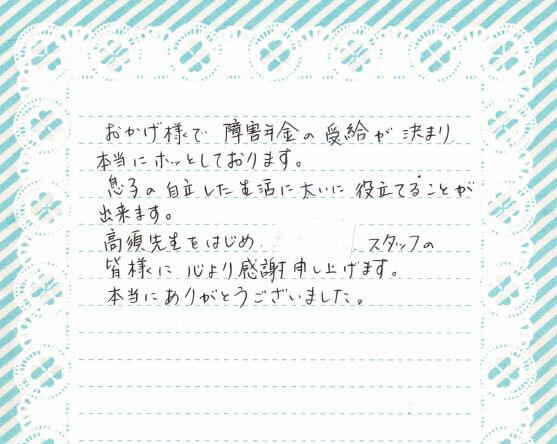 おかげ様で 障害年金の受給が決まり
本当にホッとしております。
息子の自立した生活に太いに役立てることが
出来ます。
高須先生をはじめ、 スタッフの
皆様に心より感謝申し上げます。
本当にありがとうございました。